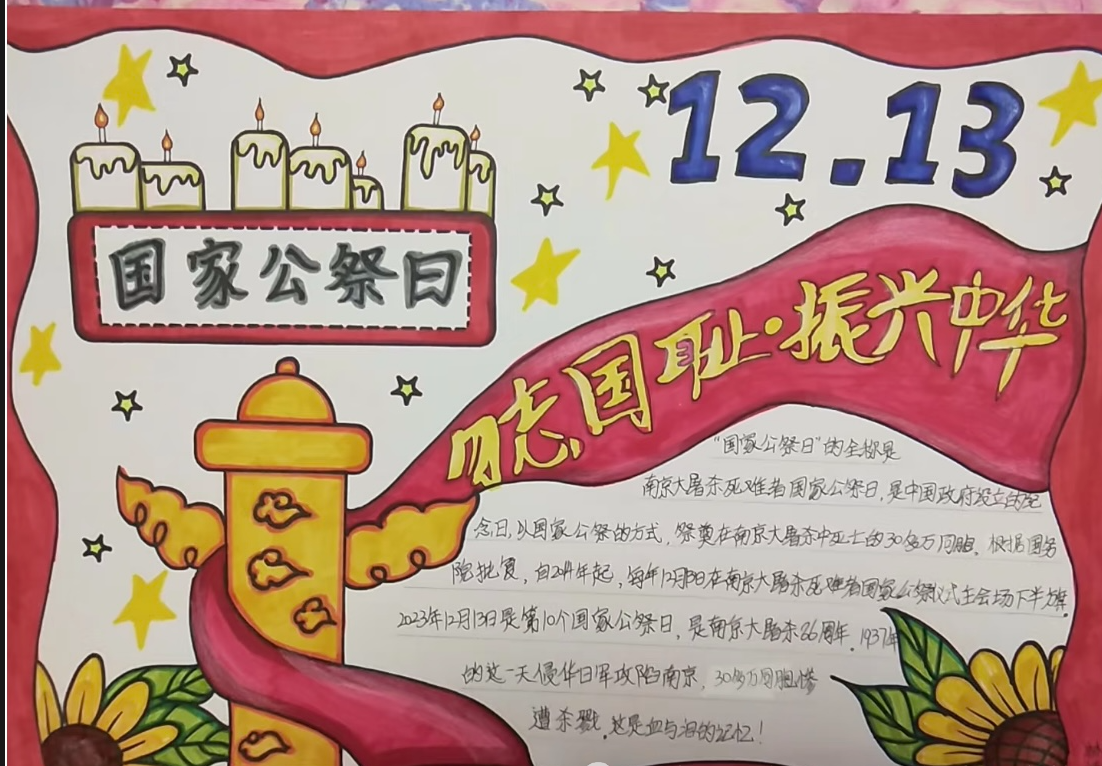 12.13
国家公祭日
勿忘国耻·振兴中华
"国家公祭日"的全称是
南京大屠杀死难者国家公祭日,是中国政府设立的纪
念日,以国家公祭的方式,祭奠在南京大屠杀中死亡的30多万同胞。根据国务
院批复,自2014年起,每年12月13日在南京大屠杀死难者国家公祭仪式主会场下半旗。
2023年12月13日是第10个国家公祭日,是南京大屠杀86周年。1937年
的这一天侵华日军攻陷南京,30多万同胞惨
遭杀戮。这是血与泪的记忆!